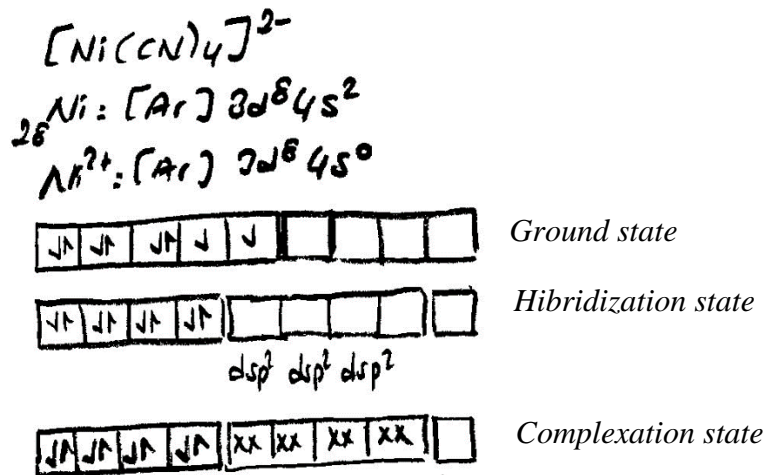 [Ni(CN)4]²⁻
₂₈Ni: [Ar] 3d⁸ 4s²
Ni²⁺: [Ar] 3d⁸ 4s⁰
Ground state
Hibridization state
dsp² dsp² dsp²
Complexation state
xx xx xx xx